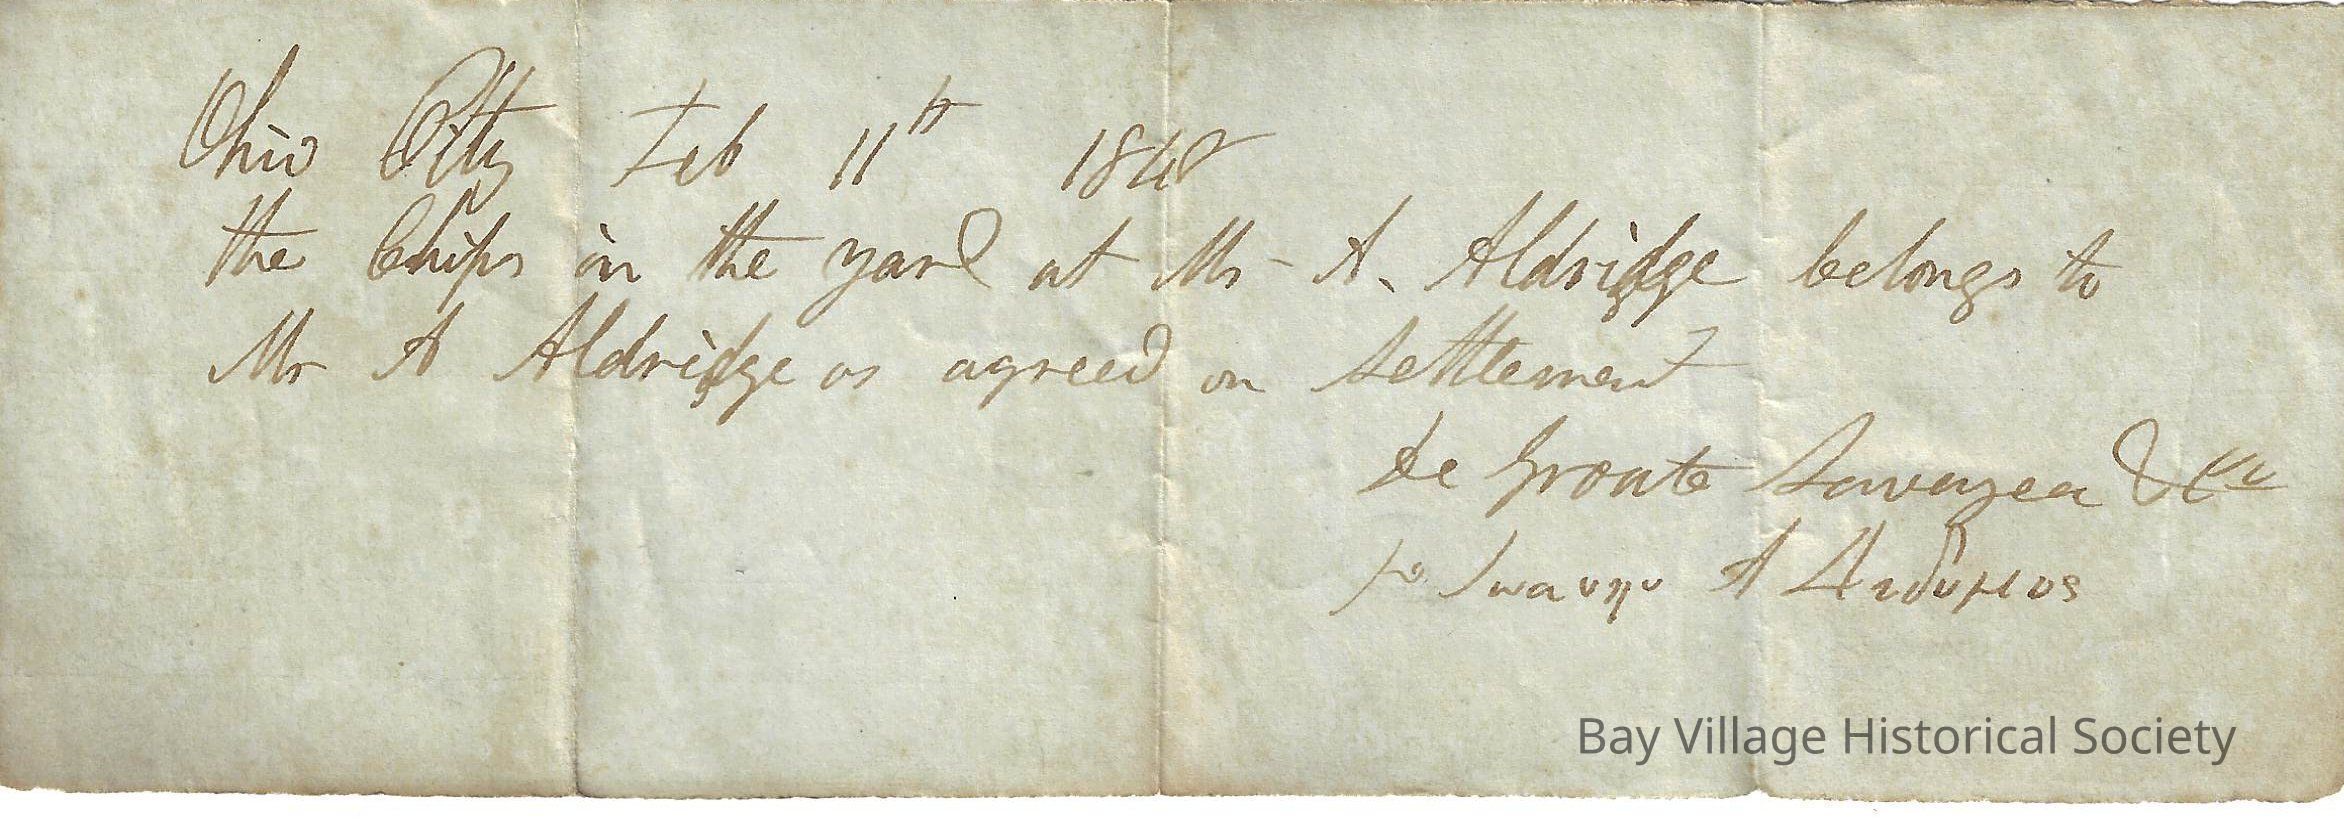 Ohio City Feb 11th 1848
the Chips in the yard at Mr A. Aldridge belongs to
Mr A Aldridge as agreed on settlement
De Groate & Co
A
Bay Village Historical Society